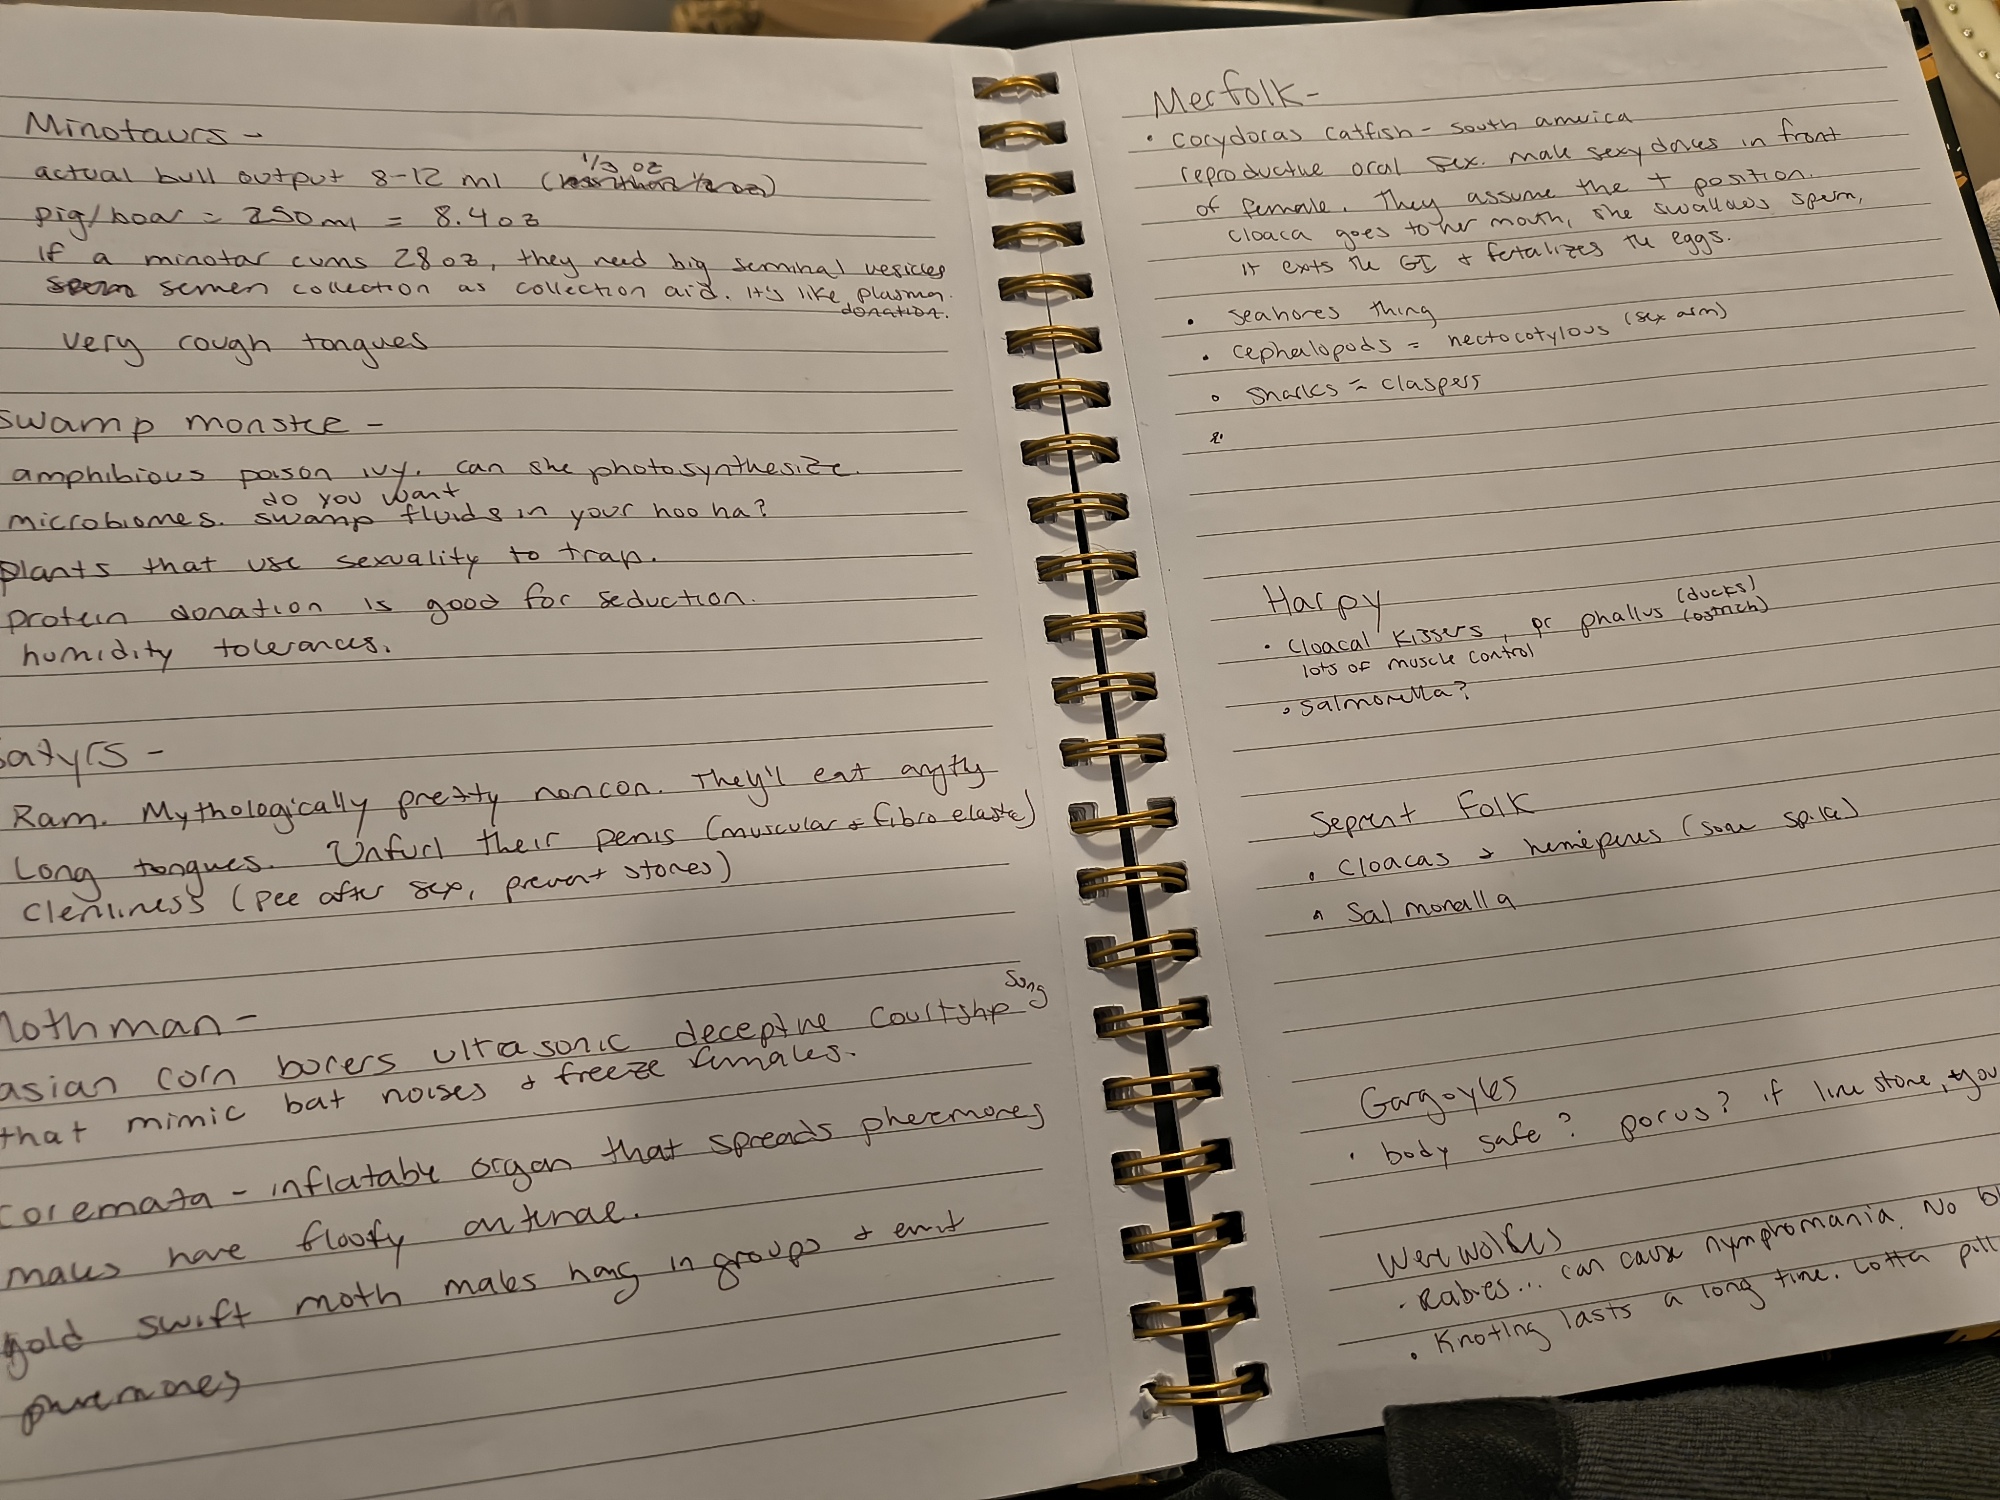 Minotaurs -
actual bull output 8-12 ml (1/3 oz)
pig/boar = 250 ml = 8.4 oz
if a minotar cums 28 oz, they need big seminal vesicles
semen collection as collection aid. It's like plasma
donation.
very cough tongues
swamp monste -
amphibious poison ivy. can she photosynthesize.
microbiomes. do you want swamp fluids in your hoo ha?
plants that use sexuality to trap.
protein donation is good for seduction.
humidity tolerances.
satyrs -
Ram. Mythologically pretty noncon. They'll eat
Long tongues. Unfurl their penis (muscular + fibro elaste)
Clenliness (pee after sex, prevent stones)
Mothman -
asian corn borers ultrasonic deceptive courtship song
that mimic bat noises + freeze females.
coremata - inflatable organ that spreads pheremones
males have floofy antenae.
gold swift moth males hang in groups + emit
pheremones
Merfolk -
• corydoras catfish - south america
reproductive oral sex. male sexy dances in front
of female. They assume the T position.
cloaca goes to her mouth, she swallows sperm,
it exits the GI + fertalizes the eggs.
• seahores thing
• cephalopods = hectocotylous (sex arm)
• sharks = claspers
•
Harpy
• cloacal kissers, or phallus (ducks) (ostrich)
lots of muscle control
• salmonella?
Seprent Folk
• cloacas + hemepenes (some spike)
• Salmonalla
Gargoyles
• body safe? porus? if limestone, you
Werewolves
• Rabies... can cause nymphomania. No
• Knoting lasts a long time. Lotta